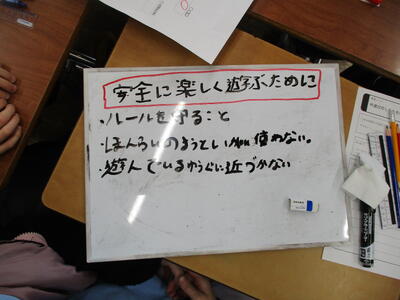 安全に楽しく遊ぶために
・ルールを守ること
・ほんらいのようといがい使わない。
・遊んでいるゆうぐに近づかない